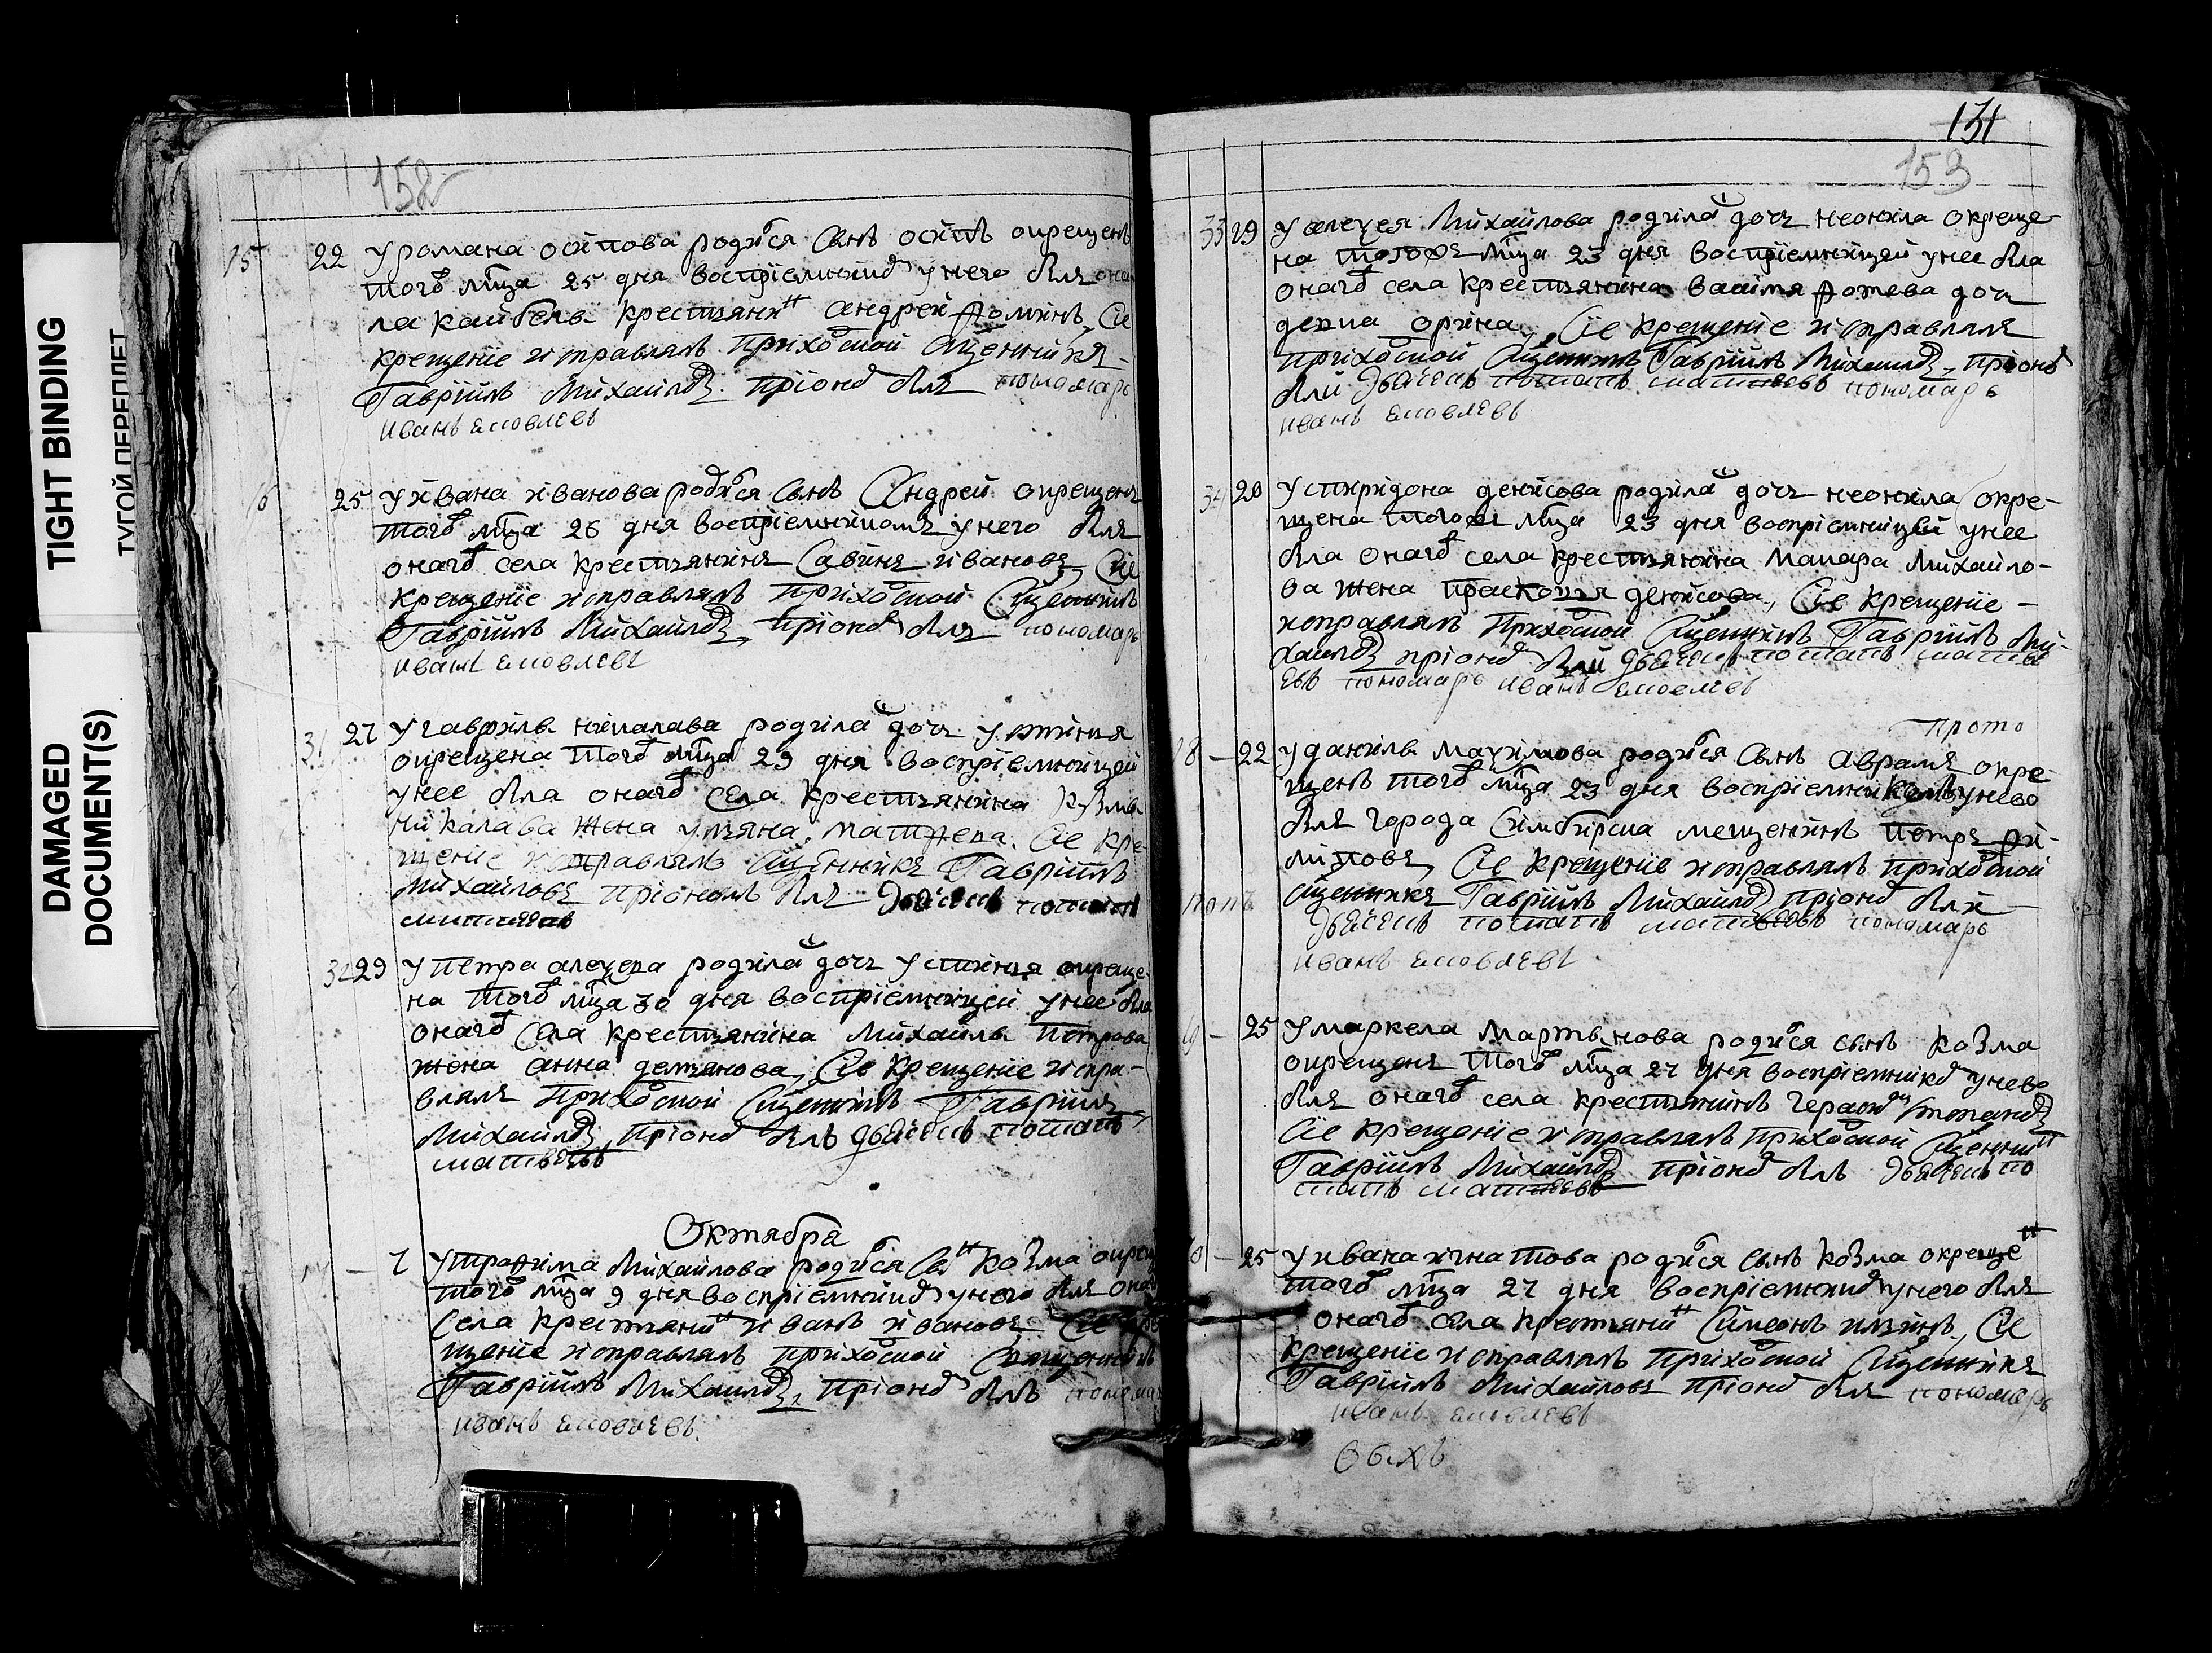 TIGHT BINDING
ТУГОЙ ПЕРЕПЛЕТ
DAMAGED
DOCUMENT(S)
158
15 22 У романа осипова родися сынъ осипъ окрещенъ
того мца 25 дня воспріемникомъ у него былъ онаго
ла кайбелъ крестьянинъ андрей фоминъ, Сіе
крещеніе исправлялъ приходской Сщенникъ
Гавріилъ Михайловъ при ономъ былъ пономарь
иванъ яковлевъ
16 25 У ивана иванова родися сынъ Андрей окрещенъ
того мца 26 дня воспріемникомъ у него былъ
онаго села крестьянинъ Савинъ ивановъ, Сіе
крещеніе исправлялъ приходской Сщенникъ
Гавріилъ Михайловъ, при ономъ былъ пономарь
иванъ яковлевъ
31 27 У гаврилы никалава родила дочь устинья
окрещена того мца 29 дня воспріемницей
у нее была онаго села крестьянина козмы
никалава жена ульяна Сіе кре-
щеніе исправлялъ Сщенникъ Гавріилъ
Михайловъ при ономъ былъ дьячекъ потапъ
матвеевъ
32 29 У петра родила дочь устинья окреще-
на того мца 30 дня воспріемницей у нее была
онаго села крестьянина михайлы петрова
жена анна демьянова, Сіе крещеніе испра-
влялъ приходской Сщенникъ Гавріилъ
Михайловъ, при ономъ былъ дьячекъ потапъ
матвеевъ
Октября
7 У трофима Михайлова родися сынъ козма окрещ
того мца 9 дня воспріемникомъ у него былъ онаго
села крестьянинъ иванъ ивановъ Сіе кре
щеніе исправлялъ приходской Священникъ
Гавріилъ Михайловъ, при ономъ былъ пономарь
иванъ яковлевъ.
131
159
33 19 У алексея Михайлова родила дочь неонила окреще-
на тогожъ мца 23 дня воспріемницей у нее была
онаго села крестьянина фотева дочь
девка орина, Сіе крещеніе исправлялъ
приходской Сщенникъ Гавріилъ Михайловъ, при ономъ
были дьячекъ потапъ матвеевъ пономарь
иванъ яковлевъ
34 20 У спиридона денисова родила дочь неонила окре-
щена тогожъ мца 23 дня воспріемницей у нее
была онаго села крестьянина макара михайло-
ва жена прасковья денисова, Сіе крещеніе
исправлялъ приходской Сщенникъ Гавріилъ Ми-
хайловъ при ономъ были дьячекъ потапъ матве
евъ пономарь иванъ яковлевъ
прото
18 22 У данилы максимова родися сынъ аврамъ окре-
щенъ того мца 23 дня воспріемникомъ у нево
былъ города Симбирска мещенинъ петръ фи-
липовъ, Сіе крещеніе исправлялъ приходской
попъ Сщенникъ Гавріилъ Михайловъ при ономъ были
дьячекъ потапъ матвеевъ пономарь
иванъ яковлевъ
19 25 У маркела мартынова родися сынъ козма
окрещенъ того мца 27 дня воспріемникомъ у нево
былъ онаго села крестьянинъ степановъ
Сіе крещеніе исправлялъ приходской Сщенникъ
Гавріилъ Михайловъ при ономъ былъ дьячекъ по
тапъ матвеевъ
25 У ивана игнатова родися сынъ козма окрещенъ
того мца 27 дня воспріемникомъ у него былъ
онаго села крестьянинъ Симеонъ ильинъ, Сіе
крещеніе исправлялъ приходской Сщенникъ
Гавріилъ Михайловъ при ономъ былъ пономарь
иванъ яковлевъ